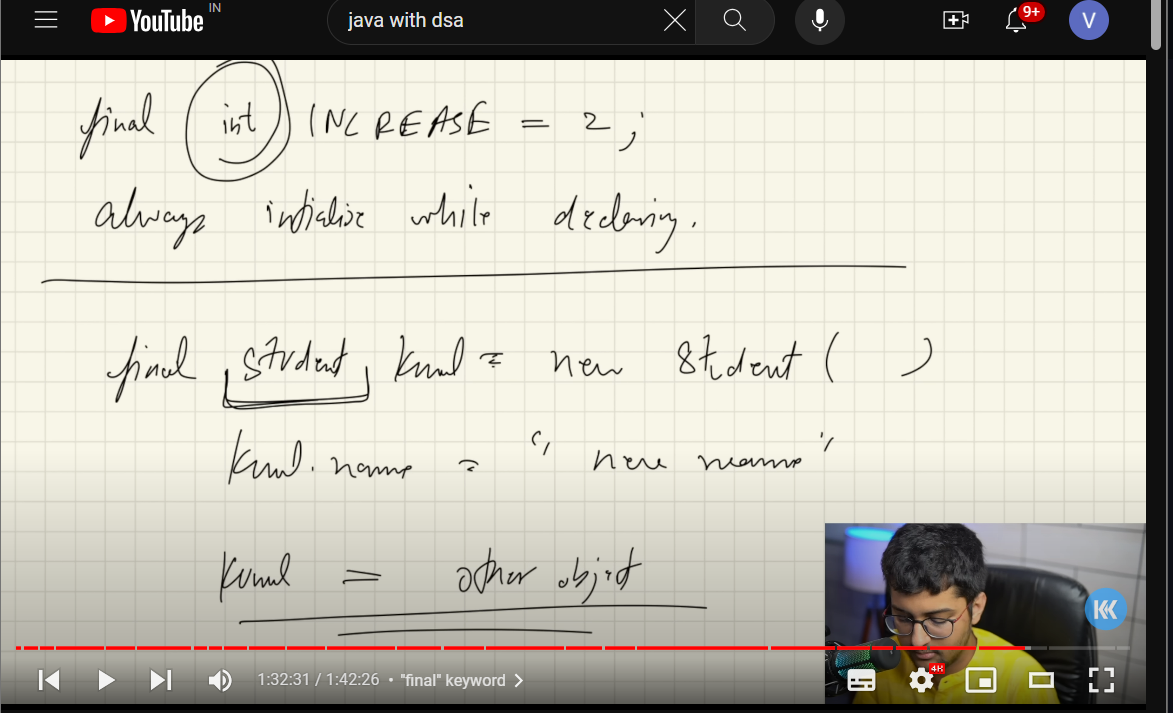 YouTube IN
java with dsa
9+
V
final int INCREASE = 2;
always intialise while declaring.
final Student Kunal = new Student ( )
Kunal. name = " new name "
Kunal = other object
KK
1:32:31 / 1:42:26 • "final" keyword
4K